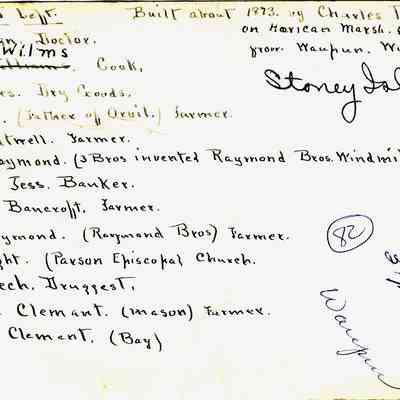 Left. Built about 1873. by Charles
Doctor. on Horican Marsh.
Wilms from Waupun, W
Cook,
Stoney Isl
rs. Dry Goods.
(Father of Orvil.) Farmer.
twell. Farmer.
aymond. (3 Bros invented Raymond Bros. Windmil
Jess. Banker.
Bancroft, Farmer.
ymond. (Raymond Bros) Farmer.
82
ght. (Parson Episcopal Church.
ech. Druggest,
Clemant. (Mason) Farmer.
Waupun
Clemant, (Bay)